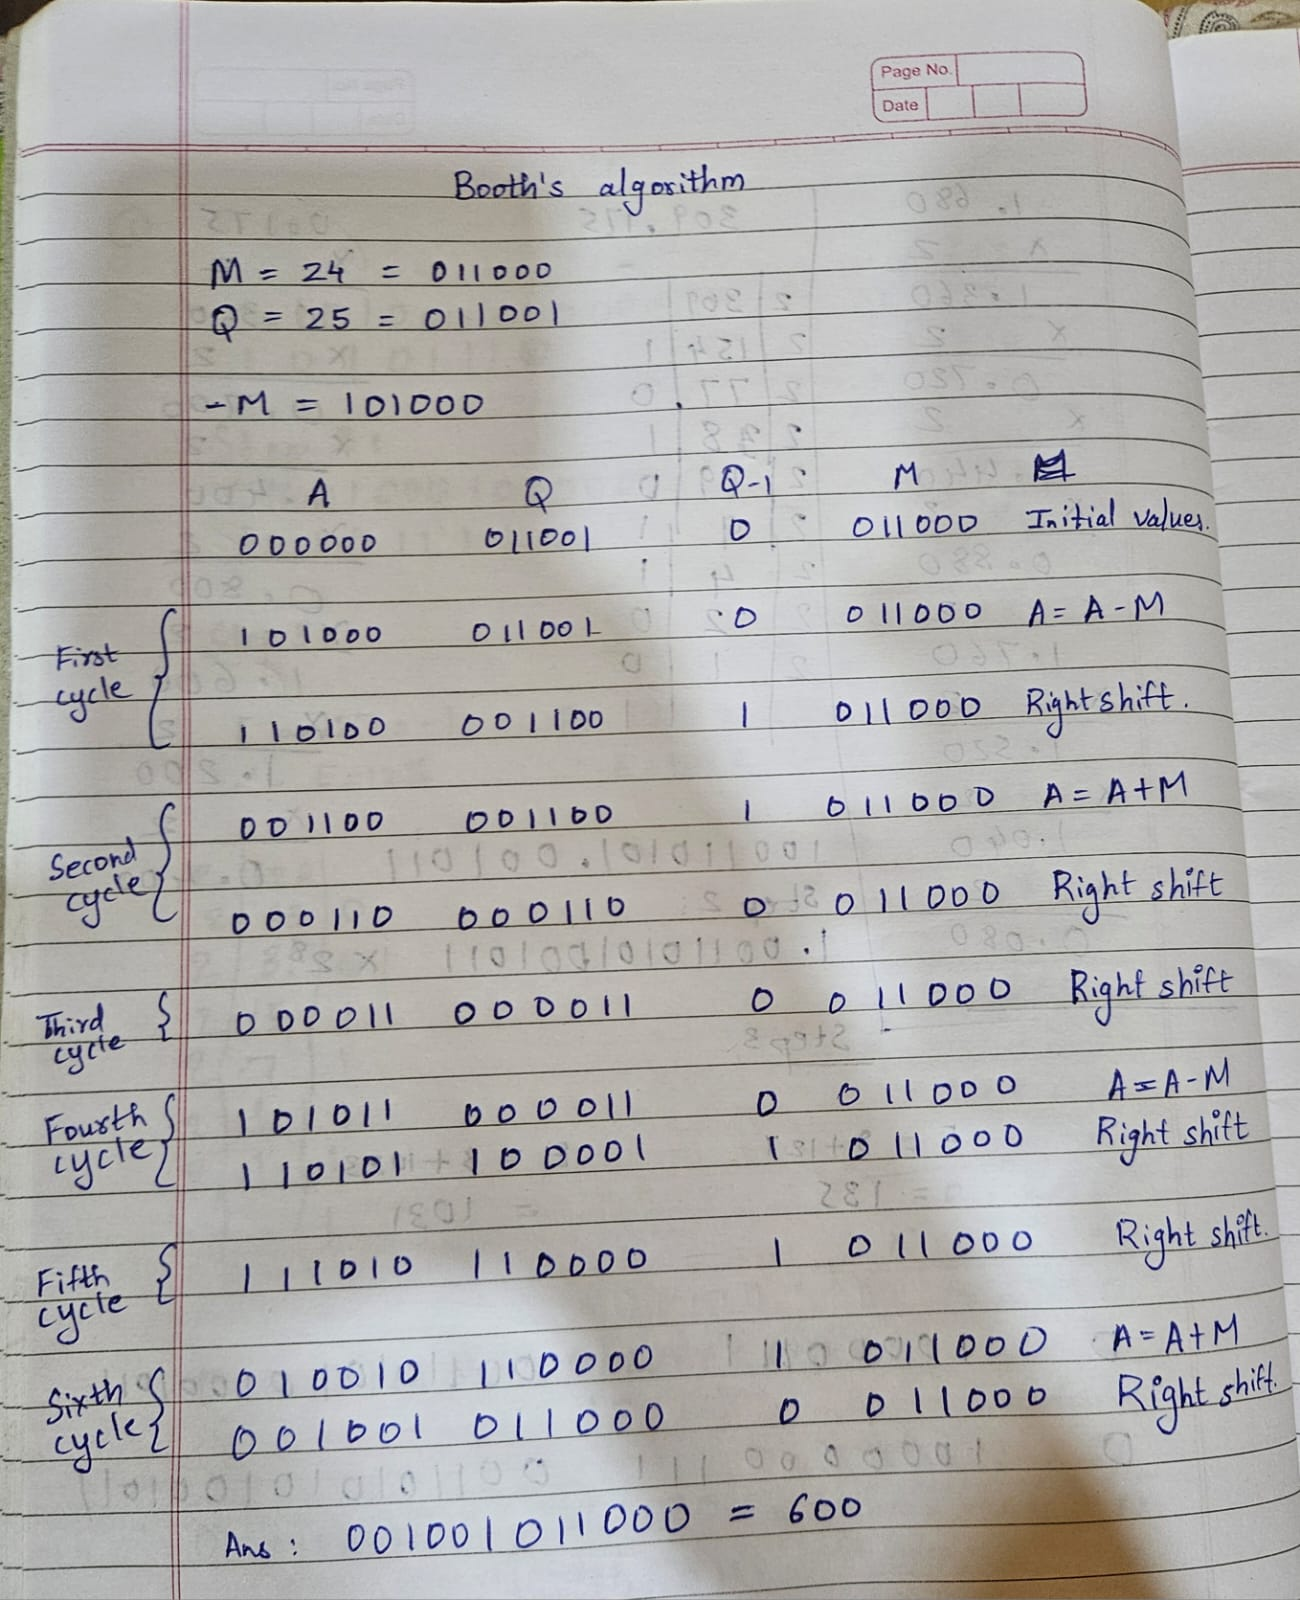 Page No.
Date
Booth's algorithm
M = 24 = 011000
Q = 25 = 011001
-M = 101000
A Q Q-1 M
000000 011001 0 011000 Initial values.
First cycle { 101000 011001 0 011000 A = A - M
110100 001100 1 011000 Right shift.
Second cycle { 001100 001100 1 011000 A = A + M
000110 000110 0 011000 Right shift
Third cycle { 000011 000011 0 011000 Right shift
Fourth cycle { 101011 000011 0 011000 A = A - M
110101 100001 1 011000 Right shift
Fifth cycle { 111010 110000 1 011000 Right shift.
Sixth cycle { 010010 110000 1 011000 A = A + M
001001 011000 0 011000 Right shift.
Ans : 001001011000 = 600